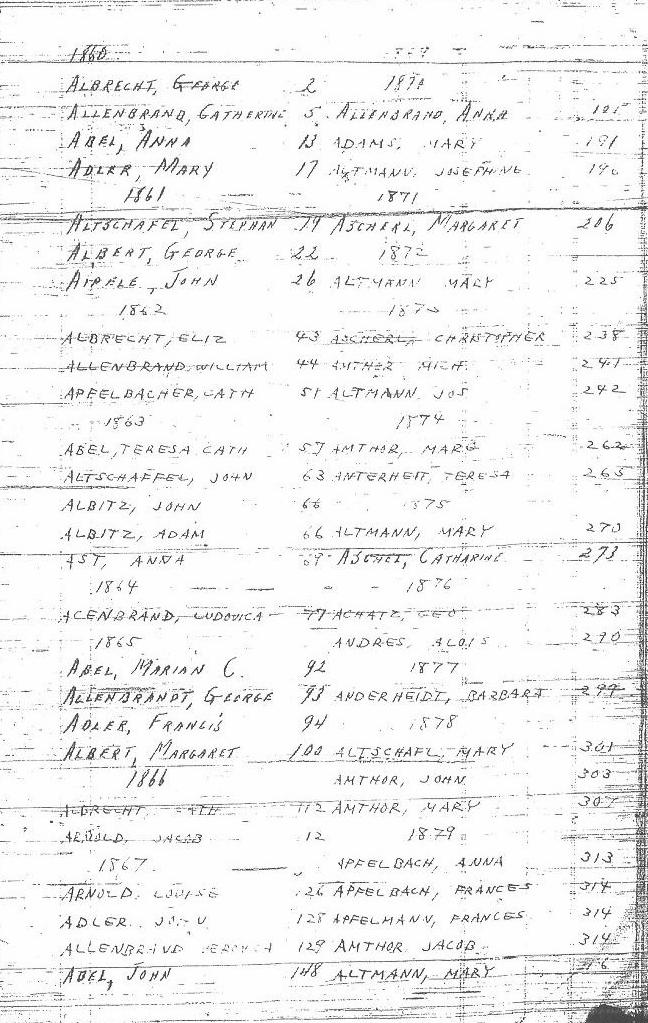 1860
ALBRECHT, GEORGE 2
ALLENBRAND, CATHERINE 5
ABEL, ANNA 13
ADLER, MARY 17
1861
ALTSCHAFEL, STEPHAN 19
ALBERT, GEORGE 22
AIPELE, JOHN 26
1862
ALBRECHT, ELIZ 43
ALLENBRAND, WILLIAM 44
APFELBACHER, CATH 51
1863
ABEL, TERESA CATH 57
ALTSCHAFFEL, JOHN 63
ALBITZ, JOHN 66
ALBITZ, ADAM 66
AST, ANNA 69
1864
ACENBRAND, LUDOVICA 77
1865
ABEL, MARIAN C. 92
ALLENBRANDT, GEORGE 93
ADLER, FRANCIS 94
ALBERT, MARGARET 100
1866
ALBRECHT, CATH 112
ARNOLD, JACOB 12
1867
ARNOLD, LOUISE 126
ADLER, JOHN 128
ALLENBRAND VERONICA 129
ABEL, JOHN 148
1870
ALLENBRAND, ANNA
ADAMS, MARY 191
ALTMANN, JOSEPHINE 196
1871
ASCHERL, MARGARET 206
1872
ALTMANN MARY 225
ASCHERL, CHRISTOPHER 238
AMTHOR MICH. 241
ALTMANN JOS 242
1874
AMTHOR, MARG 262
ANTERHEIT, TERESA 265
1875
ALTMANN, MARY 270
CATHARINE 273
1876
ACHATZ, GEO 283
ANDRES, ALOIS 290
1877
ANDERHEIDT, BARBARA 299
1878
ALTSCHAFL, MARY 301
AMTHOR, JOHN 303
AMTHOR, MARY 307
1879
APFELBACH, ANNA 313
APFELBACH, FRANCES 314
APFELMANN, FRANCES 314
AMTHOR JACOB 314
ALTMANN, MARY